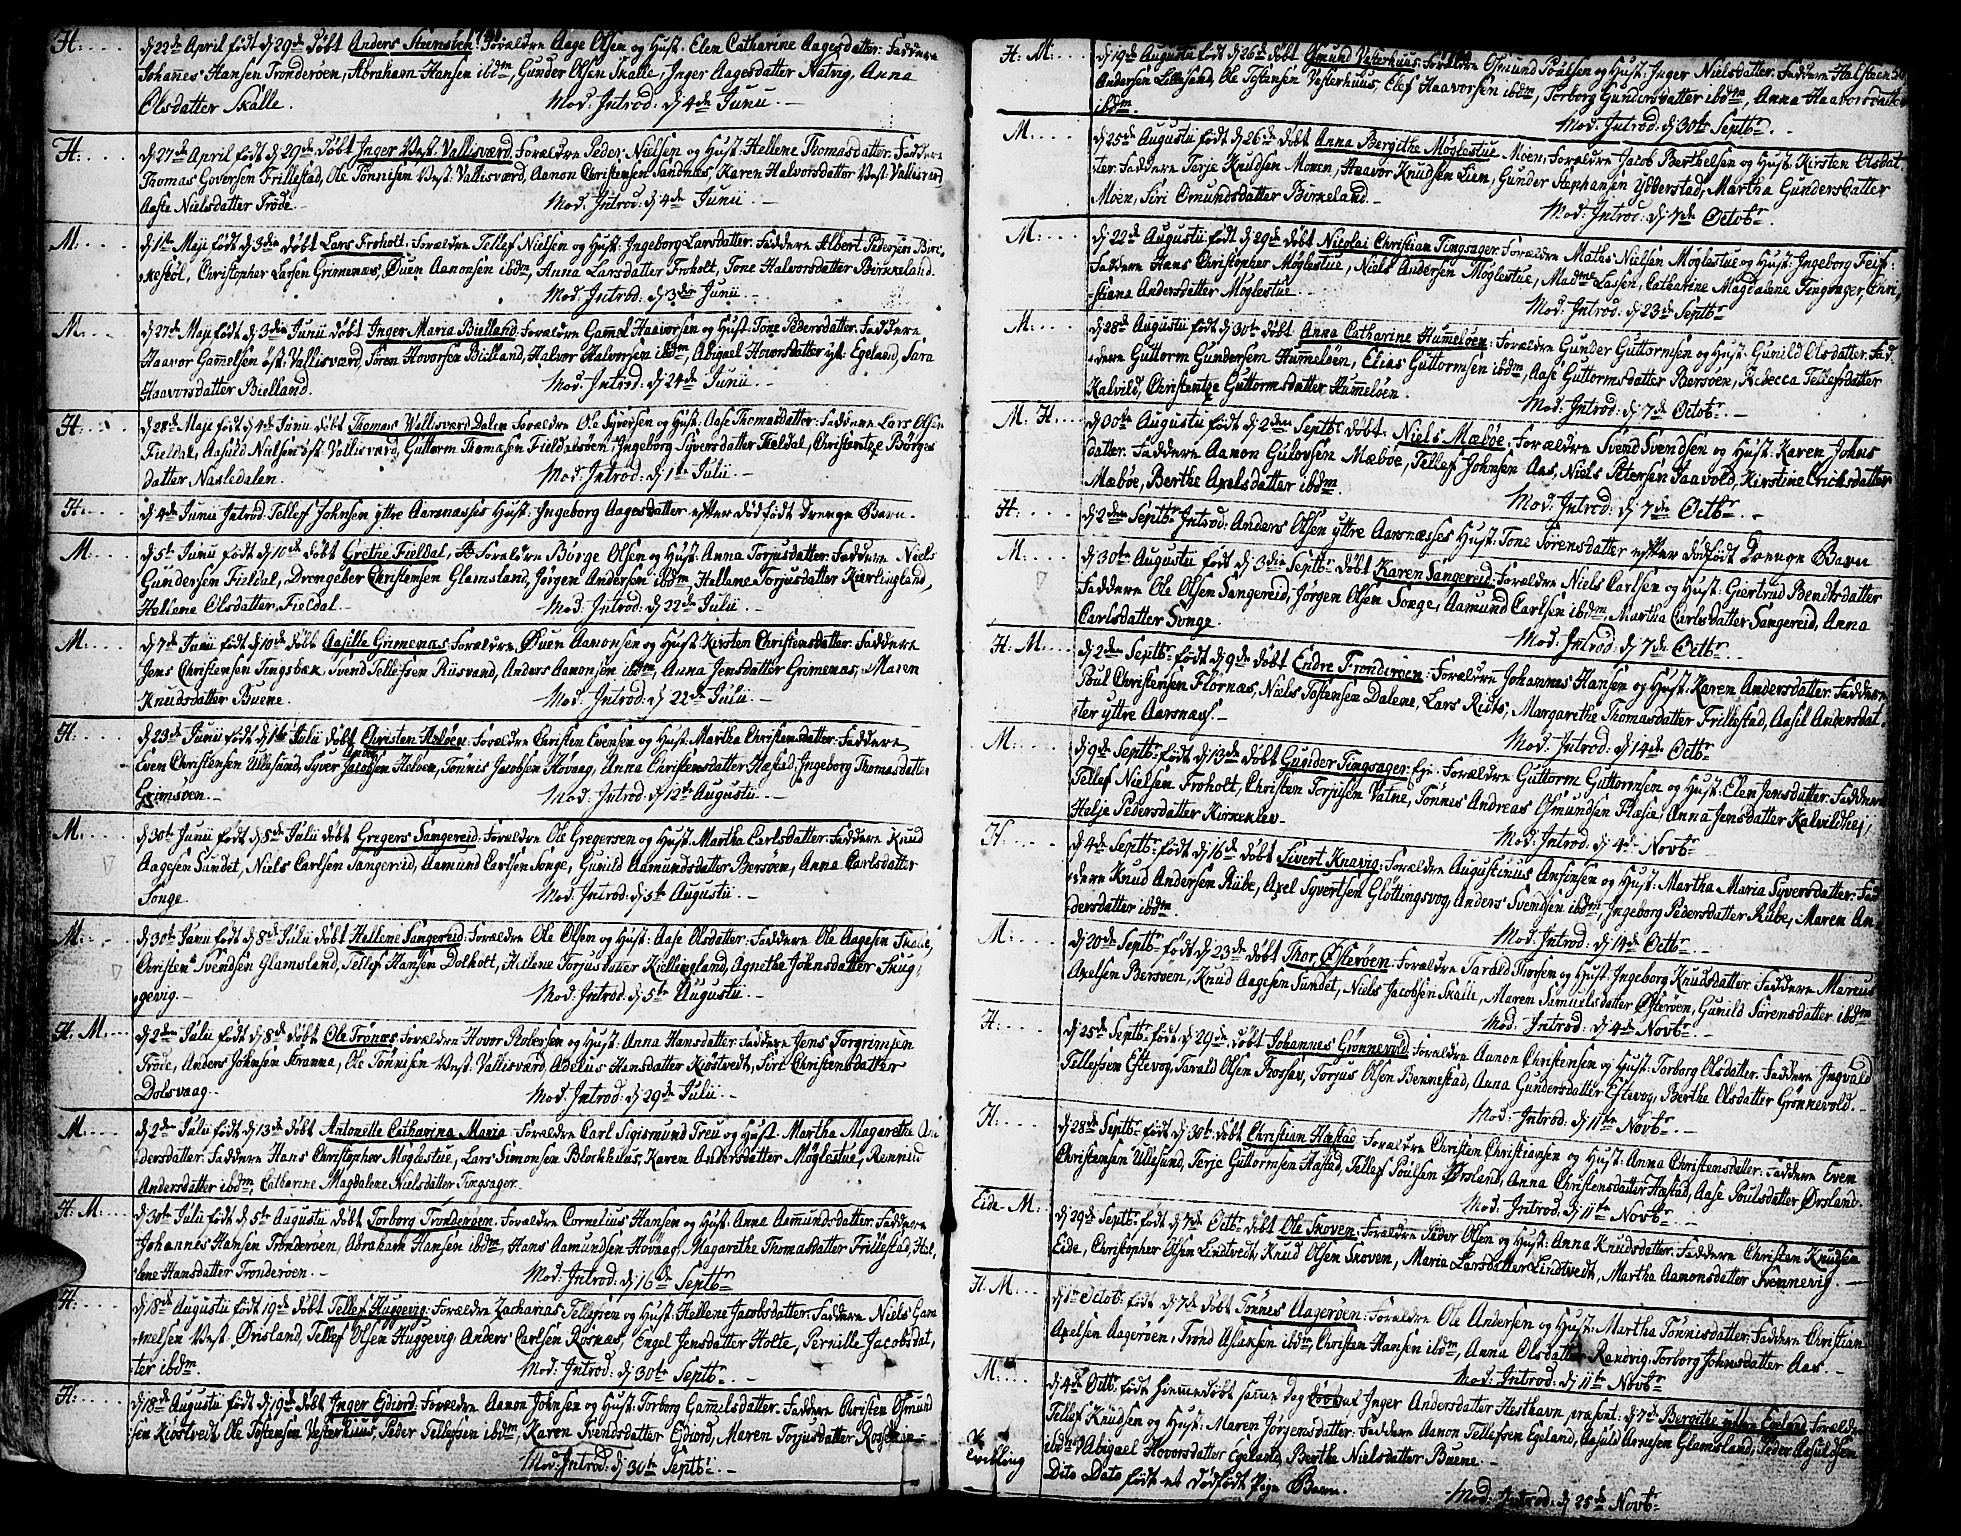 H: d 22de April født d 29de døbt Anders Steensøen. Forældre Aage Olsen og Hust: Elen Catharine Aagesdatter. Faddere
Johannes Hansen Trønderøen, Abraham Hansen ibdm, Gunder Olsen Skalle, Inger Aagesdatter Natvig, Anna
Olsdatter Skalle. Mod: Introd: d 4de Junii.
H: d 27de April født d 29de døbt Inger Vest: Vallisværd. Forældre Peder Nielsen og Hust: Hellene Thomasdatter. Faddere
Thomas Goversen Frillestad, Ole Tønnisen Vest: Vallisværd, Aanon Christensen Sandnes, Karen Halvorsdatter Vest: Vallisværd,
Aaste Nielsdatter Trøde. Mod: Introd: d 4de Junii.
M: d 1ste Maji født d 3die døbt Lars Froholt. Forældre Tellef Nielsen og Hust: Ingeborg Larsdatter. Faddere Albert Pedersen Birc-
kesböl, Christopher Larsen Grimenæs, Øuen Aanonsen ibdm, Anna Larsdatter Froholt, Tone Halvorsdatter Birkeland.
Mod: Introd: d 3die Junii.
M: d 27de Maji født d 3die Junii døbt Inger Maria Bielland. Forældre Gamel Haavorsen og Hust: Tone Pedersdatter. Faddere
Haavor Gamelsen öst: Vallisværd, Sören Hovorsen Bielland, Halvor Halvorsen ibdm, Abigael Hovorsdatter yt: Egeland, Sara
Haavorsdatter Bielland. Mod: Introd: d 24de Junii.
H: d 28de Maji født d 4de Junii døbt Thomas Vallisværd Dalen. Forældre Ole Syversen og Hust: Aase Thomasdatter. Faddere Lars Olsen
Fieldal, Aasuld Nielsen öst: Vallisværd, Guttorm Thomasen Fieldalsöen, Ingeborg Syversdatter Fieldal, Christentze Børges
datter Nasledalen. Mod: Introd: d 1ste Julii.
H: d 4de Junii Introd: Tellef Johnsen yttre Aarsnæsses Hust: Ingeborg Aagesdatter efter dødfødt Drenge Barn.
M: d 5te Junii født d 10de døbt Grethe Fieldal. Forældre Børge Olsen og Hust: Anna Torjusdatter. Faddere Niels
Gundersen Fieldal, Drengeber Christensen Glamsland, Jørgen Andersen ibdm, Hellene Torjusdatter Kierlingland,
Hellene Olsdatter Fieldal. Mod: Introd: d 22de Julii.
M: d 7de Junii født d 10de døbt Aasille Grimenæs. Forældre Øuen Aanonsen og Hust: Kirsten Christensdatter. Faddere
Jens Christensen Tingsbæk, Svend Tellefsen Riisvand, Anders Aanonsen ibdm, Anna Jensdatter Grimenæs, Maren
Knudsdatter Buene. Mod: Introd: d 22de Julii.
H: d 23de Junii født d 1ste Julii døbt Christen Haløen. Forældre Christen Evensen og Hust: Martha Christensdatter. Faddere
Even Christensen Ullesund, Syver Jacobsen Haløen, Tønnis Jacobsen Hovaag, Anna Christensdatter Hæstad, Ingeborg Thomasdatter
Grimsven. Mod: Introd: d 12te Augusti.
M: d 30te Junii født d 5te Julii døbt Gregers Sangereid. Forældre Ole Gregersen og Hust: Martha Carlsdatter. Faddere Knud
Aagesen Sundet, Niels Carlsen Sangereid, Aamund Carlsen Songe, Gunild Aamundsdatter Bersöen, Anna Carlsdatter
Songe. Mod: Introd: d 5te Augustii.
M: d 30te Junii født d 8de Julii døbt Hellene Sangereid. Forældre Ole Olsen og Hust: Aase Olsdatter. Faddere Ole Aagesen Skalle,
Christen Svendsen Glamsland, Tellef Hansen Dolholt, Hellene Torjusdatter Kiellingland, Agnethe Johnsdatter Skug-
gevig. Mod: Introd: d 5te Augustii.
H. M: d 2den Julii født d 8de døbt Ole Trønæs. Forældre Hovor Robersen og Hust: Anna Hansdatter. Faddere Jens Torgrimsen
Trøde, Anders Johnsen Stranna, Ole Tønnisen Vest: Vallisværd, Adelus Hansdatter Kiöstvedt, Siri Christensdatter
Dolsvaag. Mod: Introd: d 29de Julii.
M: d 2den Julii født d 13de døbt Antonette Catharina Maria. Forældre Carl Sigismund Treu og Hust: Martha Magarethe An-
dersdatter. Faddere Hans Christopher Møglestue, Lars Simonsen Blockhuus, Karen Andersdatter Møglestue,
Andersdatter ibdm, Catharine Magdalene Nielsdatter Tingsager.
H. M: d 30te Julii født d 5te Augustii døbt Torborg Trønderøen. Forældre Cornelius Hansen og Hust: Anna Aamundsdatter. Faddere
Johannes Hansen Trønderøen, Abraham Hansen ibdm, Hans Aamundsen Hovaag, Magarethe Thomasdatter Frillestad, Hel-
lene Hansdatter Trønderøen. Mod: Introd: d 16de Septbr
H: d 18de Augustii født 19de døbt Tellef Huggevig. Forældre Zacharias Tellefsen og Hust: Hellene Jacobsdatter. Faddere Niels Gam-
melsen Vest: Ørisland, Tellef Olsen Huggevig, Anders Carlsen Rosnæs, Engel Jensdatter Holte, Pernille Jacobsdat-
ter ibdm. Mod: Introd: d 30te Septbr.
H: d 18de Augustii født d 19de døbt Inger Ejdiord. Forældre Aanon Johnsen og Hust: Torborg Gamelsdatter. Faddere Christen Osmund
sen Kiöstvedt, Ole Tostensen Vesterhuus, Peder Tellefsen ibdm, Karen Svendsdatter Ejdiord, Maren Torjusdatter
Mod: Introd: d 30te Septbr.
H. M: d 19de Augustii født d 26de døbt Osmund Vesterhuus. Forældre Osmund Poulsen og Hust: Inger Nielsdatter. Faddere Halsteen
Andersen Lillesand, Ole Tostensen Vesterhuus, Elef Haavorsen ibdm, Torborg Gundersdatter ibdm, Anna Haavorsdatter
ibdm. Mod: Introd: d 30te Septbr.
M: d 25de Augustii født d 26de døbt Anna Bergithe Møglestue Moen. Forældre Jacob Berthelsen og Hust: Kirsten Olsdat-
ter. Faddere Terje Knudsen Moen, Haavor Knudsen Lien, Gunder Stephansen Ybberstad, Martha Gundersdatter
Moen, Siri Omundsdatter Birkeland. Mod: Introd: d 7de Octobr
M: d 22de Augustii født d 29de døbt Nicolai Christian Tingsager. Forældre Maths Nielsen Møglestue og Hust: Ingeborg Feif-
Faddere Hans Christopher Møglestue, Niels Andersen Møglestue, Madme Lassen, Catharine Magdalene Tingsager, Chri-
stiana Andersdatter Møglestue. Mod: Introd: d 23de Septbr
M: d 28de Augustii født d 30te døbt Anna Catharine Hummeløen. Forældre Gunder Guttormsen og Hust: Gunild Olsdatter. Fad-
dere Guttorm Gundersen Hummeløen, Elias Guttormsen ibdm, Aase Guttormsdatter Bersøen, Rebecca Tellefsdatter
Kalvild, Christentze Guttormsdatter Humeløen. Mod: Introd: d 7de Octobr
M. H: d 30te Augustii født d 2den Septbr døbt Niels Mæbøe. Forældre Svend Svendsen og Hust: Karen Johns
datter. Faddere Aanon Gulovsen Mæbøe, Tellef Johnsen Aas, Niels Petersen Saavold, Kirstine Ericksdatter
Mæbøe, Berthe Axelsdatter ibdm. Mod: Introd: d 7de Octbr
H: d 2den Septbr Introd: Anders Olsen yttre Aarsnæsses Hust: Tone Sörensdatter efter dødfødt Drenge Barn
M: d 30te Augustii født d 3die Septbr døbt Karen Sangereid. Forældre Niels Carlsen og Hust: Giertrud Bendtsdatter
Faddere Ole Olsen Sangereid, Jörgen Olsen Songe, Aamund Carlsen ibdm, Martha Carlsdatter Sangereid, Anna
Carlsdatter Songe. Mod: Introd: d 7de Octbr.
H. M: d 2den Septbr født d 9de døbt Endre Trønderøen. Forældre Johannes Hansen og Hust: Karen Andersdatter. Faddere
Poul Christensen Flörnæs, Niels Tostensen Dalene, Lars Riits, Margarethe Thomasdatter Frillestad, Aasel Andersdat-
ter yttre Aarsnæss. Mod: Introd: d 14de Octbr
M: d 9de Septbr født d 13de døbt Gunder Tingsager Eje. Forældre Guttorm Guttormsen og Hust: Elen Jensdatter. Faddere
Tellef Nielsen Froholt, Christen Torjusen Vatne, Tønnes Andreas Osmundsen Flæsie, Anna Jensdatter Kalvildhei,
Helje Pedersdatter Kirkekleev. Mod: Introd: d 4de Novbr
H: d 4de Septbr født d 16de døbt Sivert Knavig. Forældre Augustinius Ansinsen og Hust: Martha Maria Syversdatter. Fad-
dere Knud Andersen Ribe, Axel Syvertsen Glöttingsvog, Anders Svendsen ibdm, Ingeborg Pedersdatter Ribe, Maren An-
dersdatter ibdm. Mod: Introd: d 14de Octbr
M: d 20de Septbr født d 23de døbt Thor Østerøen. Forældre Tarald Thorsen og Hust: Ingeborg Knudsdatter. Faddere Marcus
Axelsen Bersøen, Knud Aagesen Sundet, Niels Jacobsen Skalle, Maren Samuelsdatter Østerøen, Gunild Sörensdatter ibdm
Mod: Introd: d 4de Novbr
H: d 25de Septbr født d 29de døbt Johannes Grønnevold. Forældre Aanon Christensen og Hust: Torborg Olsdatter. Faddere Ingvald
Tellefsen Eftevog, Tarald Olsen Rossav, Torjus Olsen Bennestad, Anna Gundersdatter Eftevog, Berthe Olsdatter Grønnevold.
Mod: Introd: d 11te Novbr
H: d 28de Septbr født d 30te døbt Christian Hæstad. Forældre Christen Christiansen og Hust: Anna Christensdatter. Faddere Even
Christensen Ullesund, Terje Guttormsen Hæstad, Tellef Poulsen Ørsland, Anna Christensdatter Hæstad, Aase Poulsdatter Ørsland.
Mod: Introd: d 11te Novbr
Eide M: d 29de Septbr født d 7de Octbr døbt Ole Skoven. Forældre Peder Olsen og Hust: Anna Knudsdatter. Faddere Christen Knudsen
Eide, Christopher Olsen Lindtvedt, Knud Olsen Skoven, Maria Larsdatter Lindtvedt, Martha Aamonsdatter Svennevig.
H. M: d 1ste Octobr født d 7de døbt Tønnes Aagerøen. Forældre Ole Andersen og Hust: Martha Tønnisdatter. Faddere Christian
Axelsen Aagerøen, Trond Aslaksen ibdm, Christen Hansen ibdm, Anna Olsdatter Randvig, Torborg Johnsdatter Aas
Mod: Introd: d 11te Novbr
M: d 4de Octbr født hiemmedøbt samme dag af Inger Andersdatter Hesthavn, præsent: d 7de Bergithe yttre Egeland. Forældre
Tellef Knudsen og Hust: Maren Jørgensdatter. Faddere Aanon Tellefsen Egeland, Aasuld Arnesen Glamsland, Peder Aasuldsen
ibdm, Abigael Hovorsdatter Egeland, Berthe Nielsdatter Buene.
Tvilling Dito Dato født et dødfødt Pige Barn. Mod: Introd: d 25de Novbr